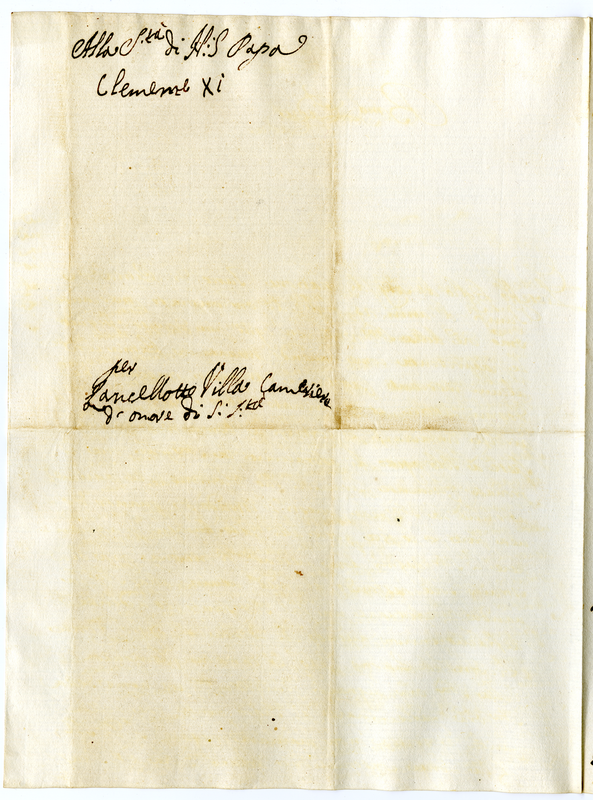 Alla S.tà di N: S Papa
Clemente Xi
per
Lancellotto Villa Cameriere
d'onore di S: S.tà